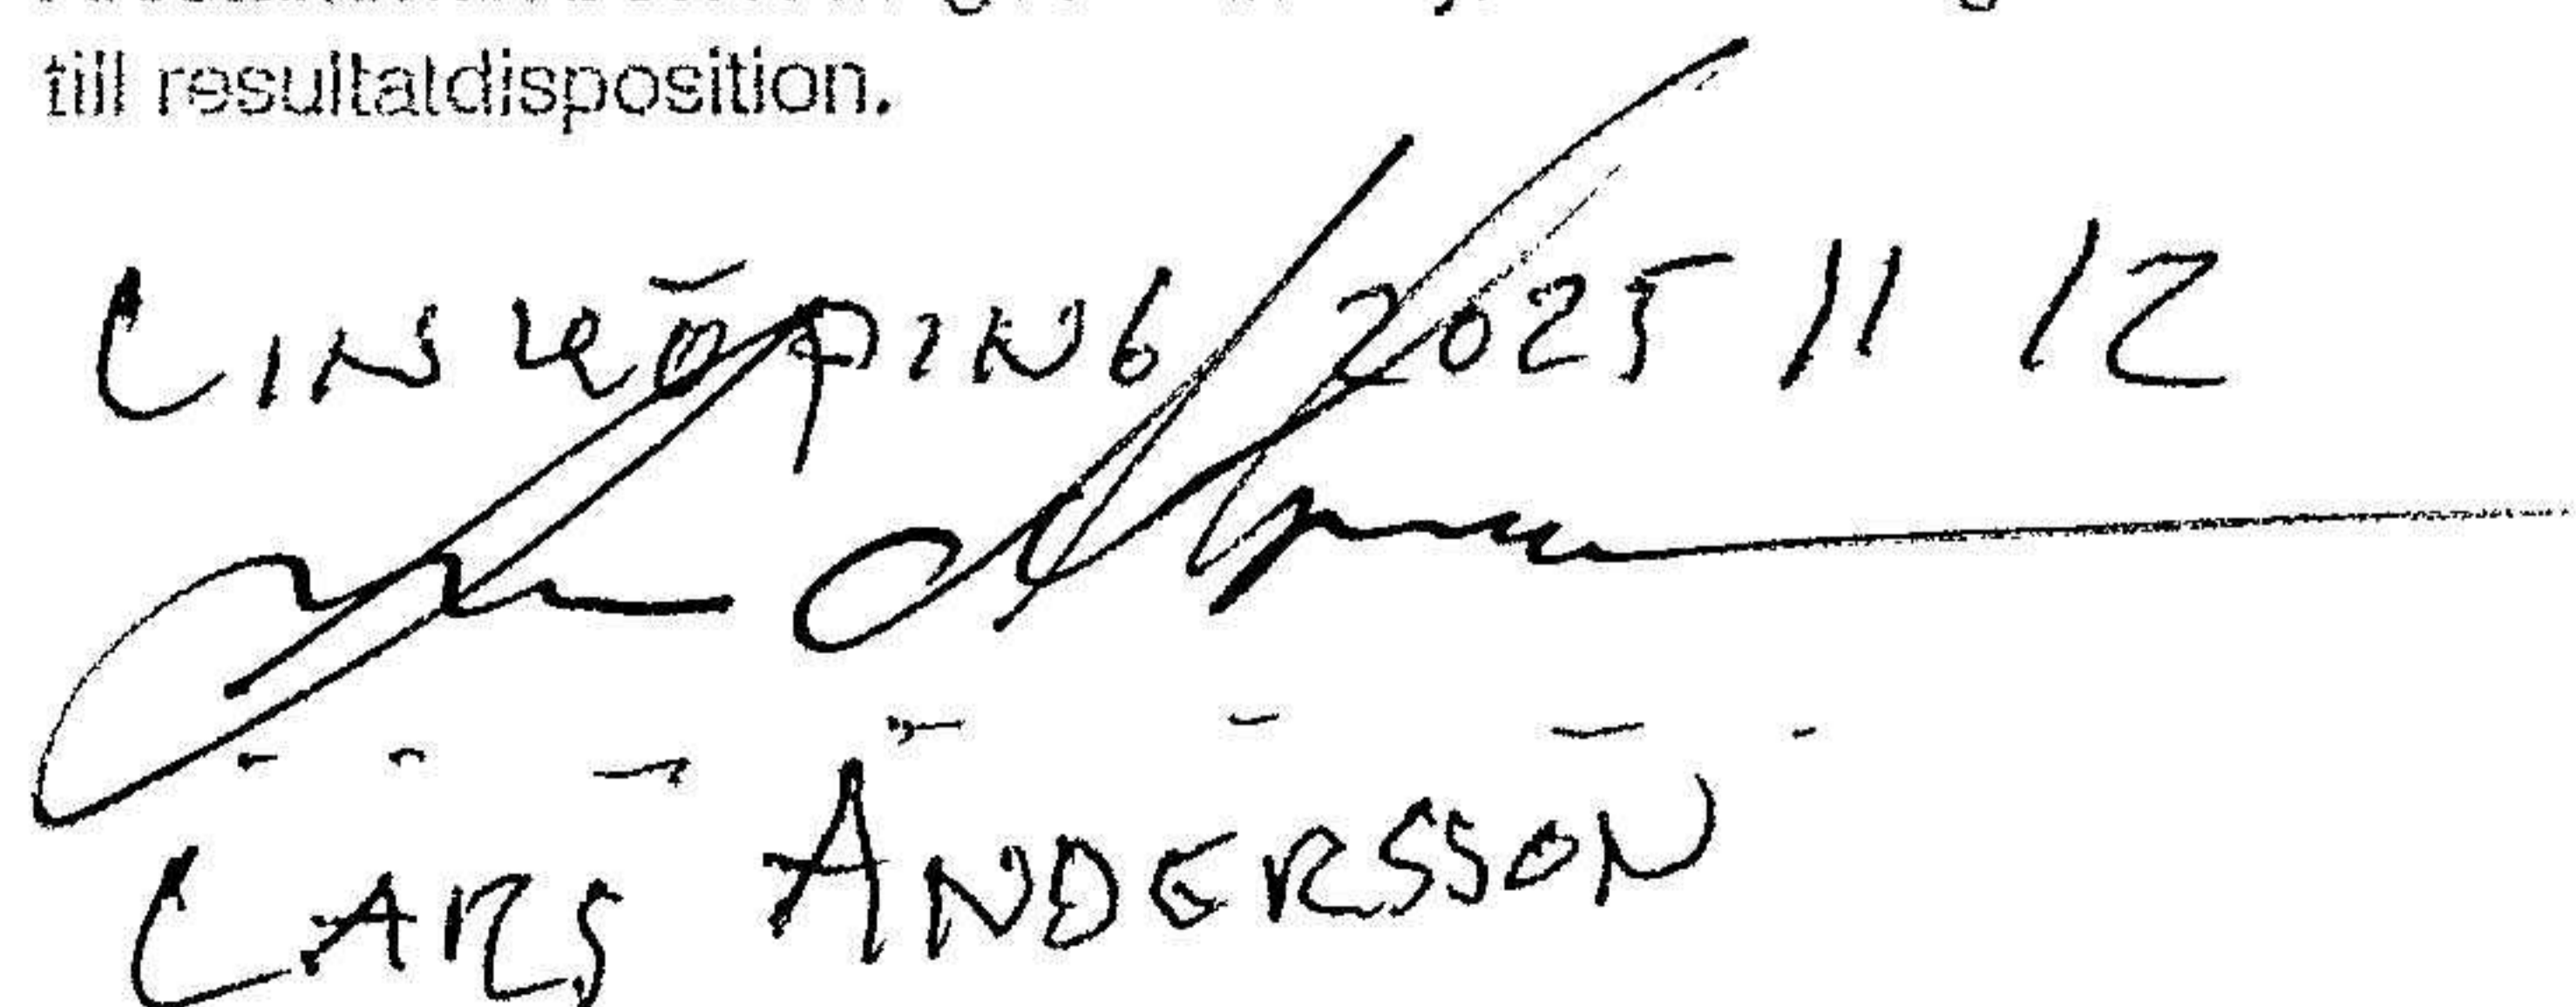 till resultatdisposition.
LINKÖPING 2025 11 12
LARS ANDERSSON